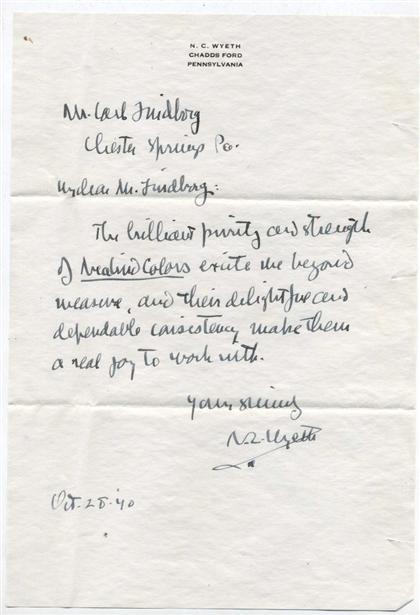 N. C. WYETH
CHADDS FORD
PENNSYLVANIA
Mr. Carl Lindborg
Chester Springs Pa.
My dear Mr. Lindborg:
The brilliant purity and strength
of Colors excite me beyond
measure, and their delightful and
dependable consistency make them
a real joy to work with.
Yours sincerely
N. C. Wyeth
Oct. 28 '40